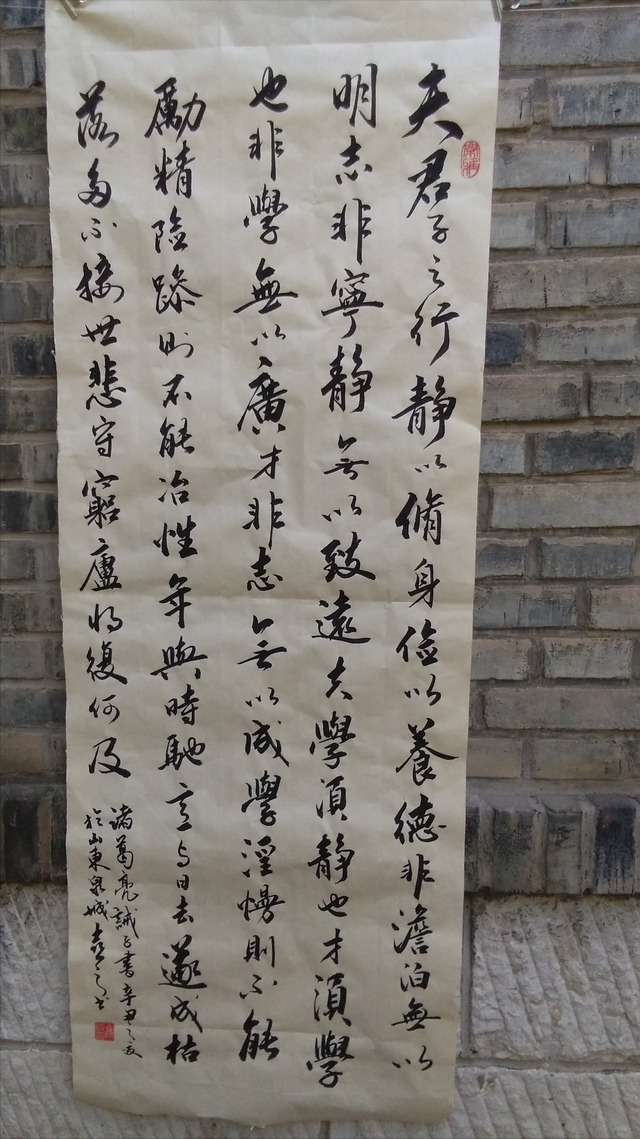 夫君子之行靜以脩身俭以養德非澹泊無以
明志非寧靜無以致遠夫學須靜也才須學
也非學無以廣才非志無以成學淫慢則不能
勵精险躁则不能冶性年與時馳意与日去遂成枯
落多不接世悲守窮廬将復何及
諸葛亮誡子書辛丑之夏
於山東泉城